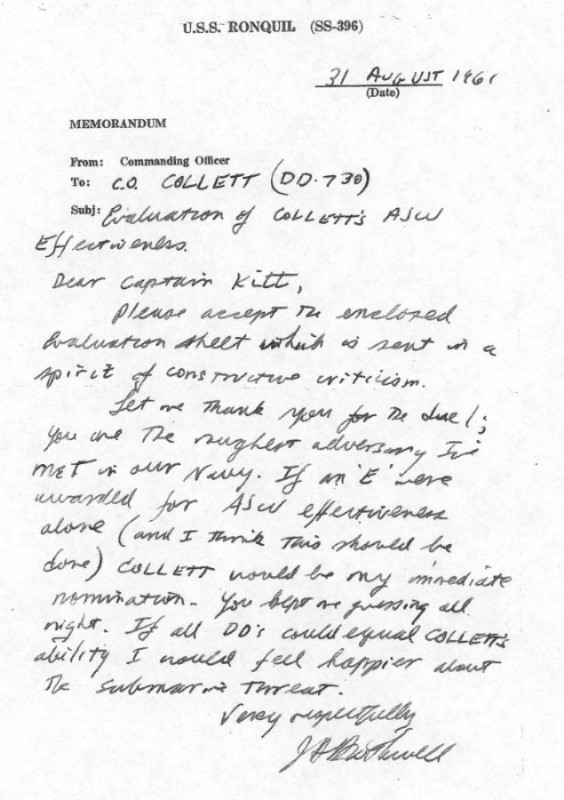 U.S.S. RONQUIL (SS-396)
31 AUGUST 1961
(Date)
MEMORANDUM
From: Commanding Officer
To: C.O. COLLETT (DD-730)
Subj: Evaluation of COLLETT's ASW
Effectiveness.
Dear Captain Kitt,
Please accept the enclosed
Evaluation sheet which is sent in a
spirit of constructive criticism.
Let me thank you for the duel;
you are the roughest adversary I've
met in our Navy. If an 'E' were
awarded for ASW effectiveness
alone (and I think this should be
done) COLLETT would be my immediate
nomination. You kept me guessing all
night. If all DD's could equal COLLETT's
ability I would feel happier about
the submarine threat.
Very respectfully